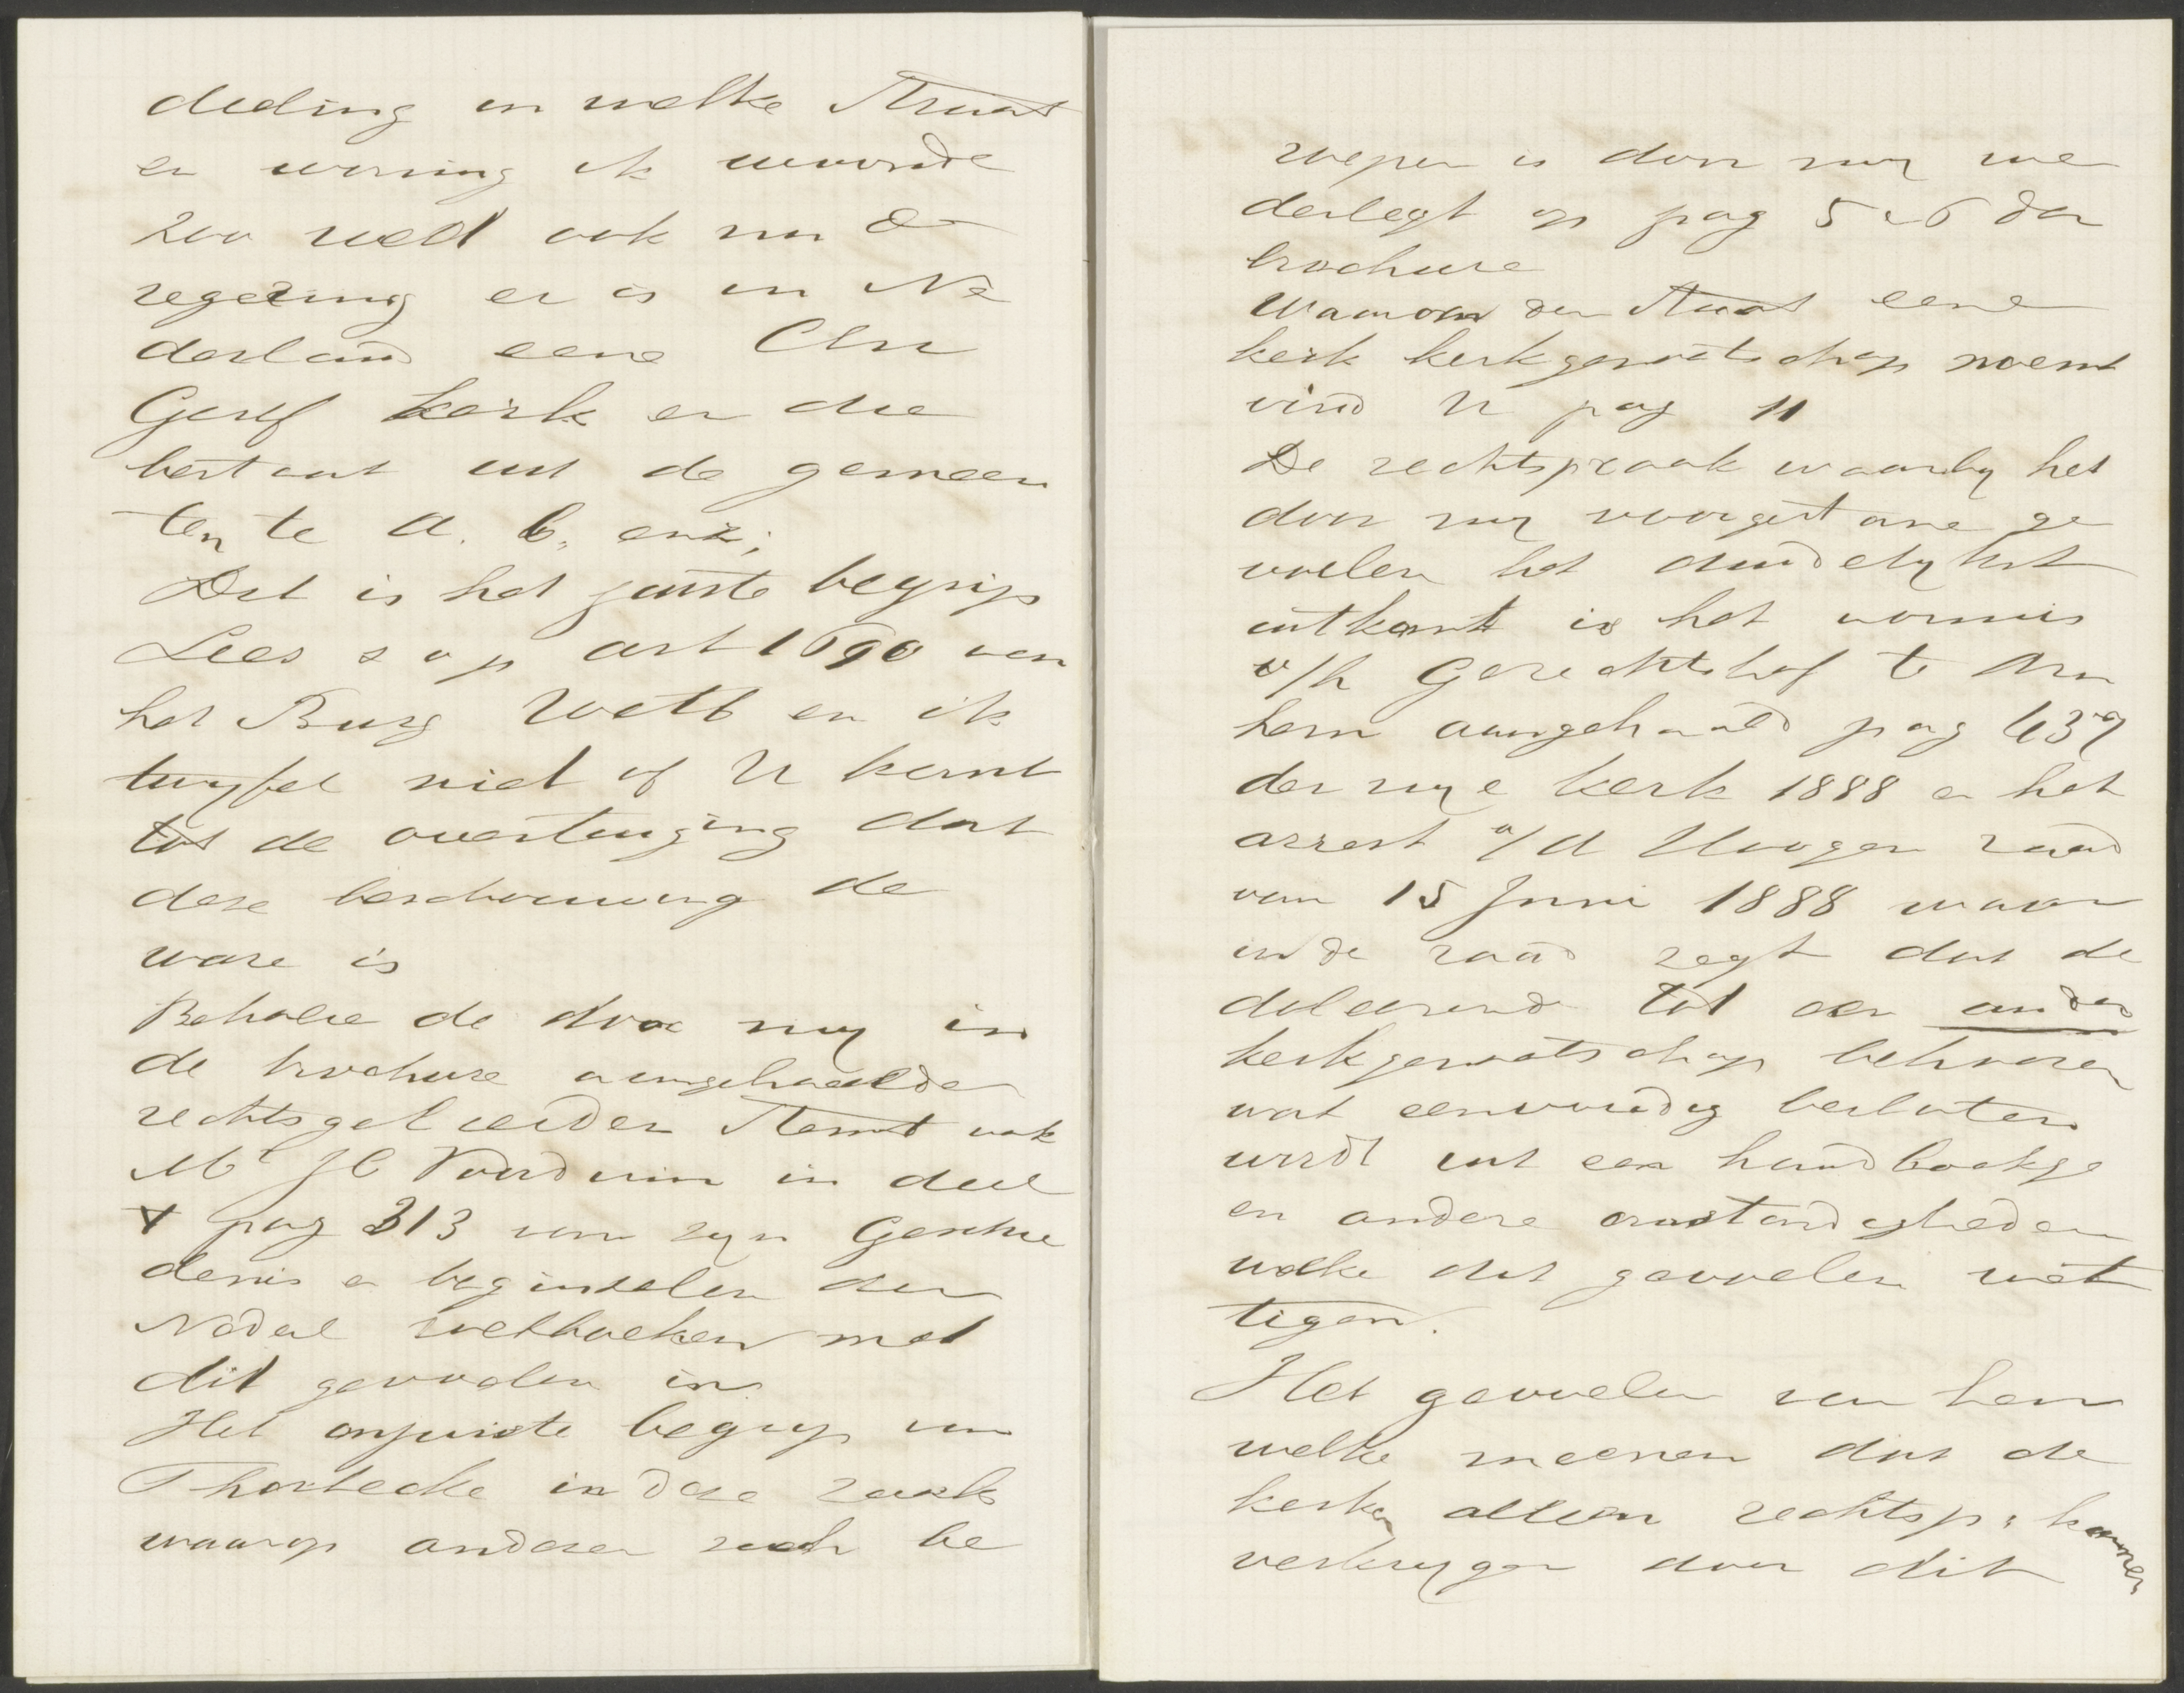 deeling in welke Straat
en woning ik woonde
zoo weet ook nu de
regering er is in Ne
derland eene Chr
Geref kerk en die
bestaat uit de gemeen
ten te A. B. enz;
Dit is het juiste begrip
Lees s v p art 1690 van
het Burg Wetb en ik
twyfel niet of U komt
tot de overtuiging dat
deze beschouwing de
ware is
Behalve de door my in
de brochure aangehaalde
rechtsgeleerden stemt ook
Mr J C Voorduin in deel
V pag 313 van zyn Geschie
denis en beginselen der
Nederl wetboeken met
dit gevoelen in
Het onjuiste begrip van
Thorbecke in deze zaak
waarop anderen zich be
roepen is door my we
derlegt op pag 5 en 6 der
brochure
Waarom de Staat eene
kerk kerkgenootschap noemt
vind U pag 11
De rechtspraak waarby het
door my voorgestane ge
voelen het duidelykst
uitkomt is het vonnis
v/h Gerechtshof te Arn
hem aangehaald pag 439
der vrye kerk 1888 en het
arrest v/d Hoogen raad
van 15 Juni 1888 waar
in de raad zegt dat de
doleerend tot een ander
kerkgenootschap behooren
wat eenvoudig besloten
wordt uit een handboekje
en andere omstandigheden
welke dit gevoelen wet
tigen.
Het gevoelen van hen
welke meenen dat de
kerken alleen rechtsp: kunnen
verkrygen door dit